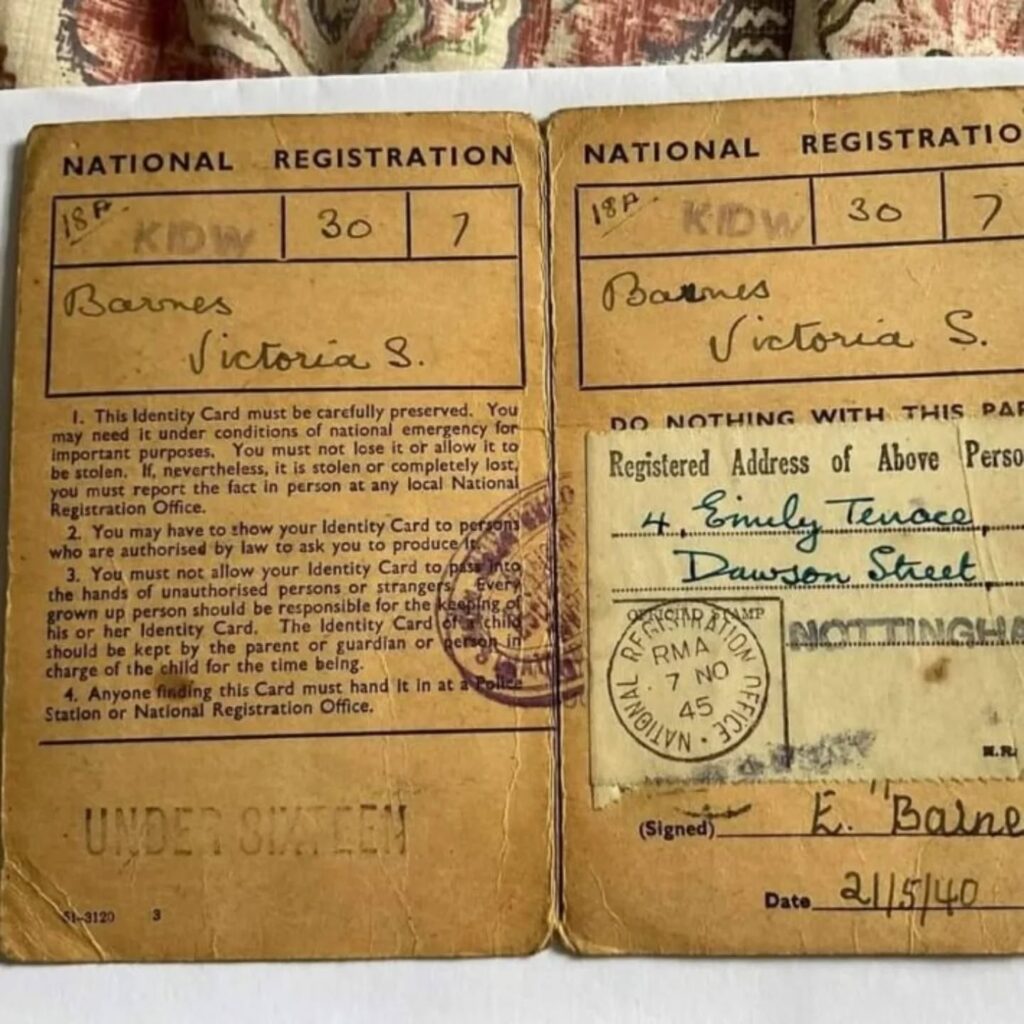 NATIONAL REGISTRATION
18A KIDW 30 7
Barnes
Victoria S.
1. This Identity Card must be carefully preserved. You
may need it under conditions of national emergency for
important purposes. You must not lose it or allow it to
be stolen. If, nevertheless, it is stolen or completely lost,
you must report the fact in person at any local National
Registration Office.
2. You may have to show your Identity Card to persons
who are authorised by law to ask you to produce it.
3. You must not allow your Identity Card to pass into
the hands of unauthorised persons or strangers. Every
grown up person should be responsible for the keeping of
his or her Identity Card. The Identity Card of a child
should be kept by the parent or guardian or person in
charge of the child for the time being.
4. Anyone finding this Card must hand it in at a Police
Station or National Registration Office.
UNDER SIXTEEN
51-3120 3
NATIONAL REGISTRATIO
18A KIDW 30 7
Barnes
Victoria S.
DO NOTHING WITH THIS PAR
Registered Address of Above Perso
4, Emily Terrace,
Dawson Street,
OFFICIAL STAMP
NATIONAL REGISTRATION OFFICE
RMA
7 NO
45
NOTTINGHA
N.R.
(Signed) E. Barne
Date 21/5/40